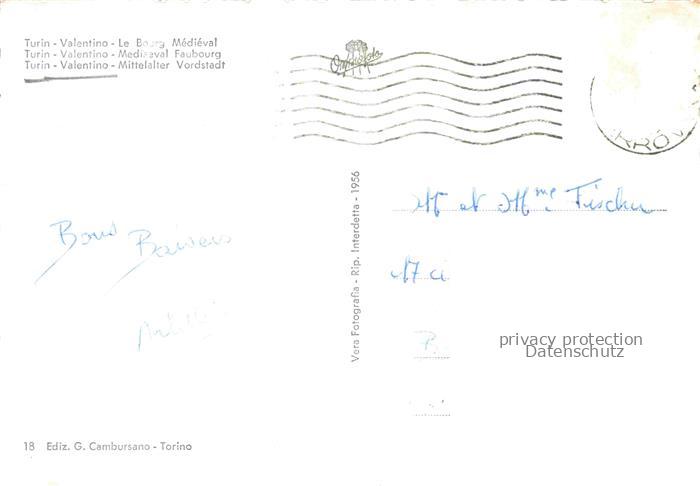 Turin - Valentino - Le Bourg Médiéval
Turin - Valentino - Mediæval Faubourg
Turin - Valentino - Mittelalter Vordstadt
Bons
Baisers
Vera Fotografia - Rip. Interdetta - 1956
M et Mme Fischer
17 ci
privacy protection
Datenschutz
18 Ediz. G. Cambursano - Torino